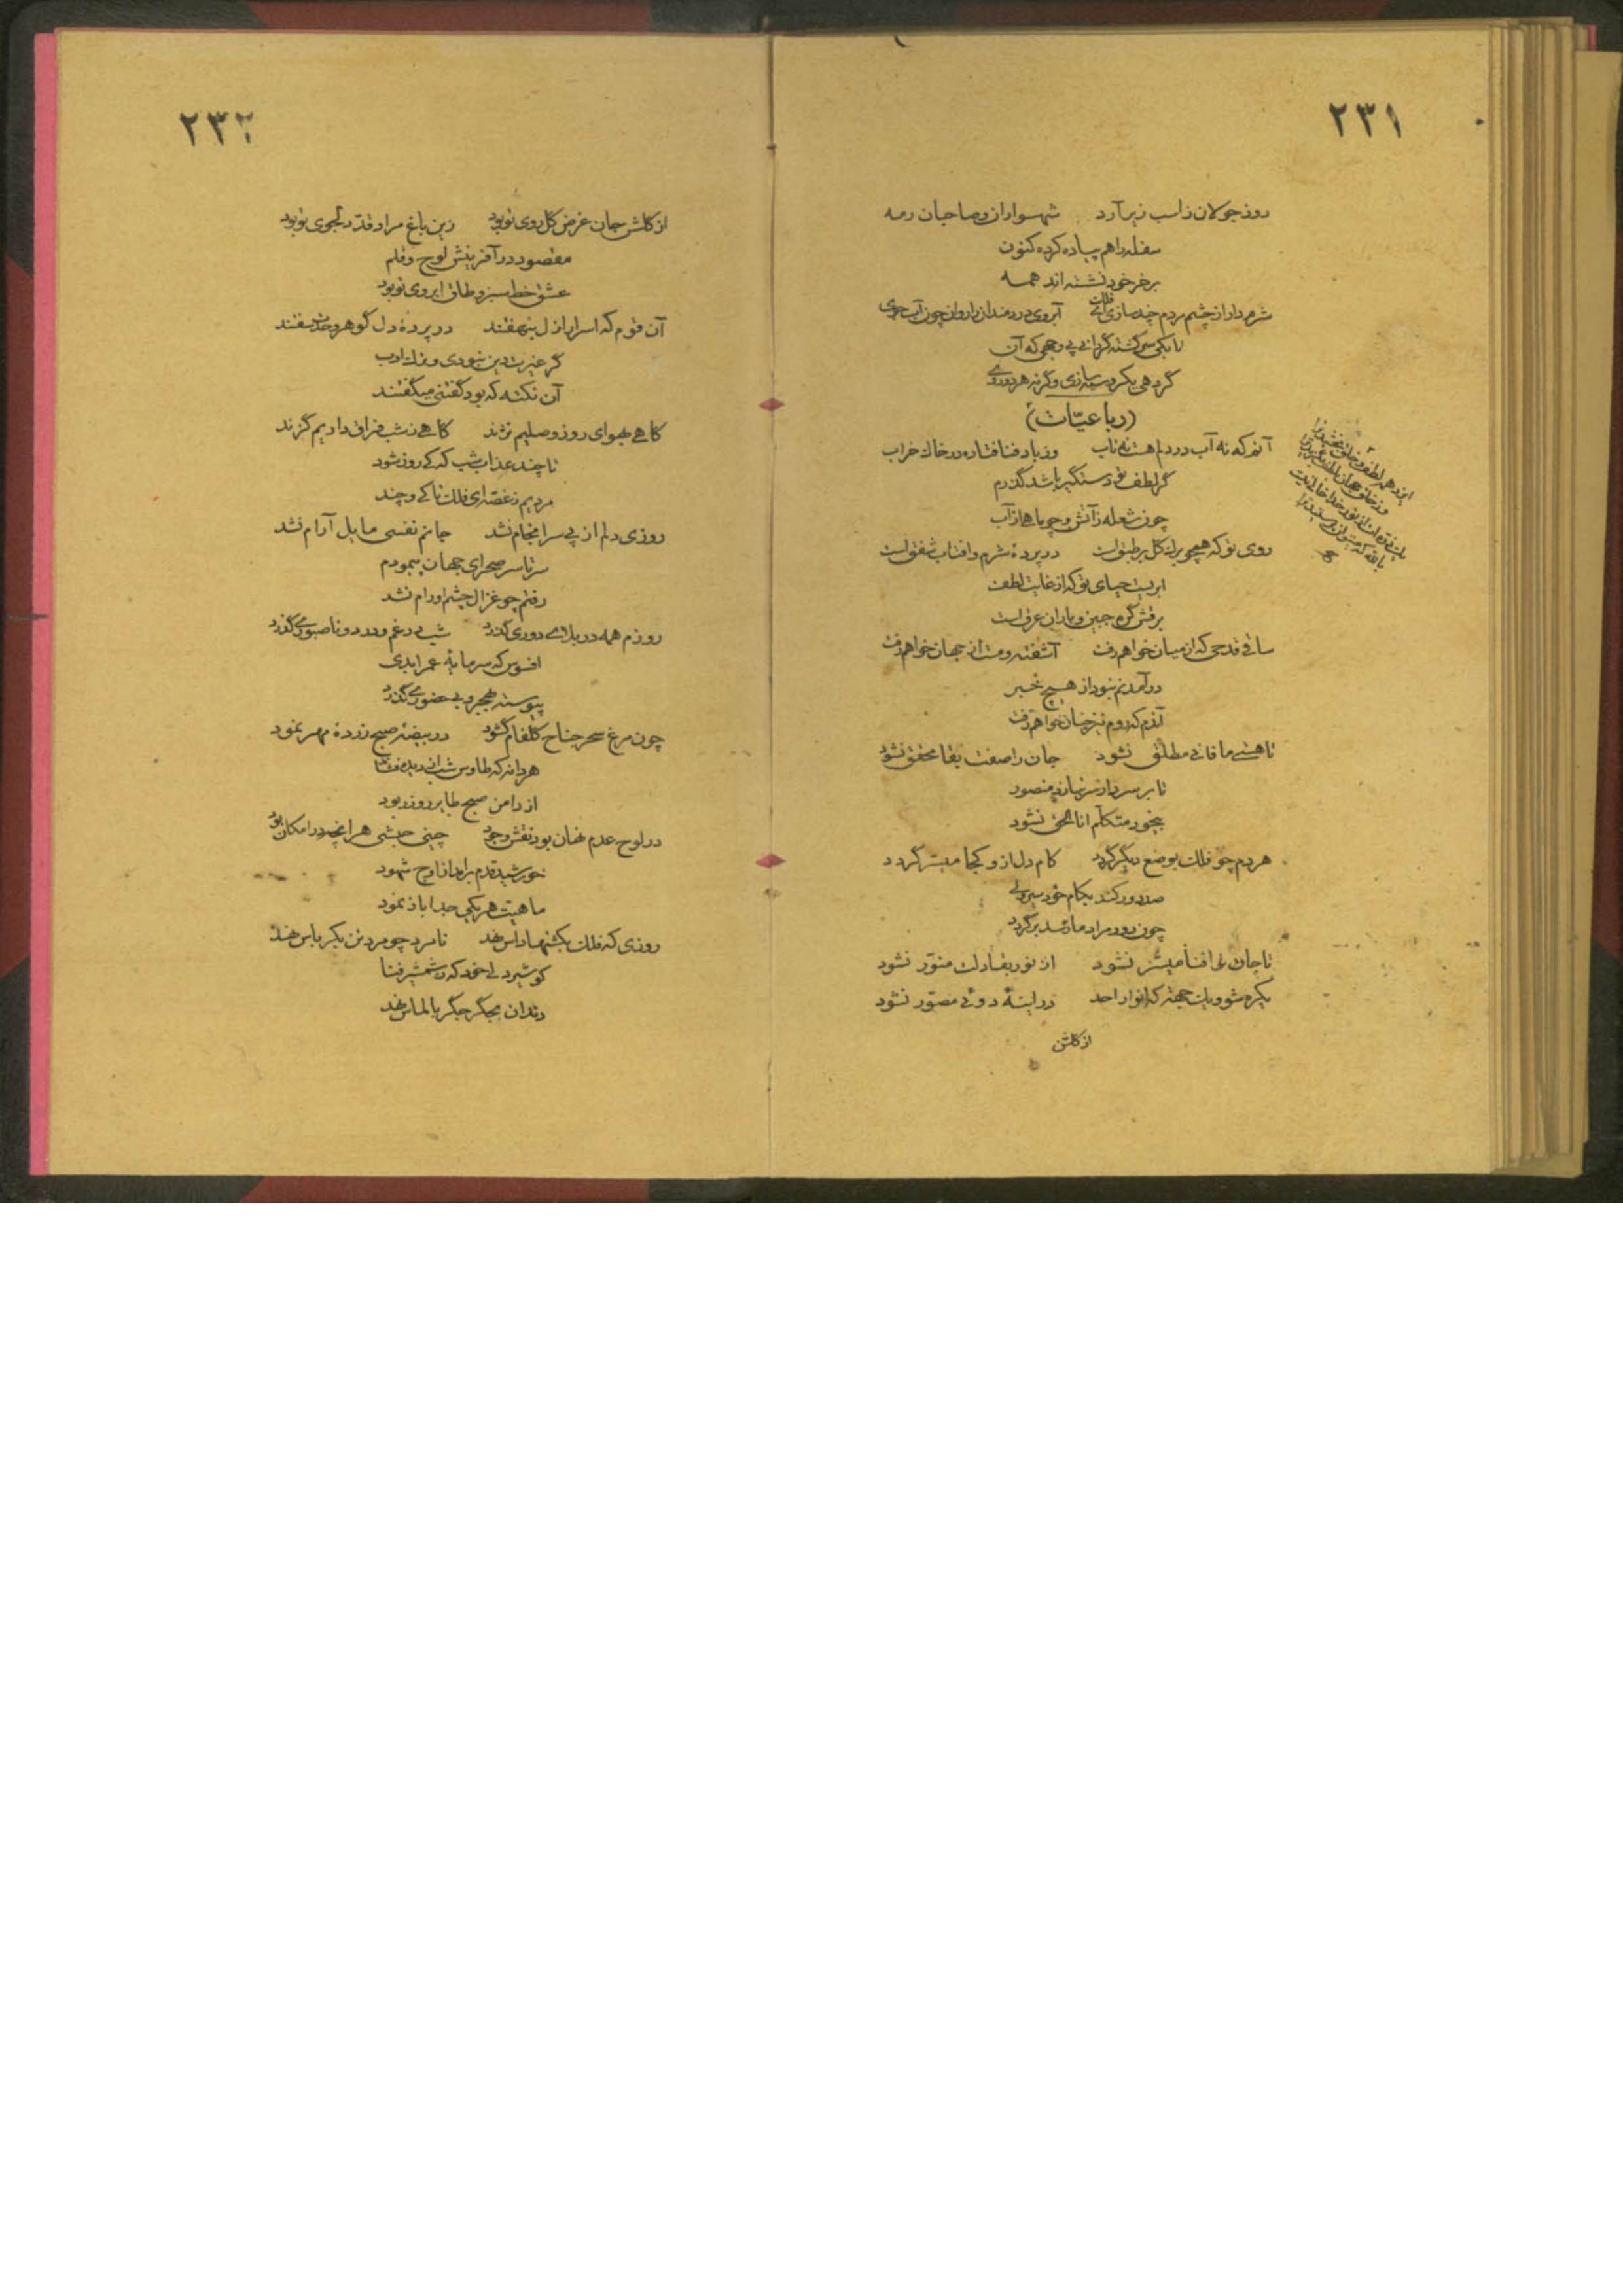 ۲۳۱
روز جولان ز اسب زیر آرد شهسواران و صاحبان رمه
سفله را هم پیاده کرده کنون
بر خر خود نشسته‌اند همه
شرم دار از چشم مردم چند سازی ای فلک آبروی دردمندان را روان چون آب جوی
تا بکی سرگشته گردانی پی وجهی که آن
گردهی یکرو سیه سازی وگرنه هر دو روی
(رباعیّات)
آنم که نه آب در دلم هست نه تاب وز باد فنا فتاده در خاک خراب
گر لطف تو دستگیر باشد گذرم
چون شعله ز آتش و چو ماهی از آب
روی تو که همچو برگ گل بر طبق است در پردهٔ شرم و آفتاب شفق است
ابریست حیای تو که از غایت لطف
برقش گره جبین و باران عرق است
ساقی قدحی که از میان خواهم رفت آشفته و مست از جهان خواهم رفت
در آمدنم نبود از هیچ خبر
آندم که روم نیز چنان خواهم رفت
تا هستی ما فانی مطلق نشود جان را صفت بقا محقق نشود
تا بر سر دار سر نبازد منصور
بیخود متکلم اناالحق نشود
هر دم چو فلک بوضع دیگر گردد کام دل ازو کجا میسّر گردد
صد دور کند بکام خود سیر ولی
چون دور مراد ما رسد برگردد
تا جان ترا فنا میسّر نشود از نور بقا دلت منوّر نشود
یکره شو و یک جهت که انوار احد در اینهٔ دوئی مصوّر نشود
از گلشن
یک ذره از نور خدا خالی نیست
۲۳۲
از گلشن جان غرض گل روی تو بود زین باغ مراد قدّ دلجوی تو بود
مقصود در آفرینش لوح و قلم
عشق خط سبز و طاق ابروی تو بود
آن قوم که اسرار ازل بنهفتند در پردهٔ دل گوهر وحدت سفتند
گر غیرت دین نبودی و ترک ادب
آن نکته که بود گفتنی میگفتند
گاهی بهوای روز وصلیم نژند گاهی ز شب فراق داریم گزند
تا چند عذاب شب که کی روز شود
مردیم ز غصه ای فلک تا کی و چند
روزی دلم از پی سرانجام نشد جانم نفسی مایل آرام نشد
سرتاسر صحرای جهان پیمودم
رفتم چو غزال چشم او رام نشد
روزم همه در بلای دوری گذرد شب در غم و درد و ناصبوری گذرد
افسوس که سرمایهٔ عمر ابدی
پیوسته بهجر و بی حضوری گذرد
چون مرغ سحر جناح گلفام گشود در بیضهٔ صبح زردهٔ مهر نمود
هر دانه که طاوس شب از دیده فشاند
از دامن صبح طایر روز ربود
در لوح عدم نهان بود نقش وجود چینی حبشی هرانچه در امکان بود
خورشید قدم برامد از اوج شهود
ماهیت هر یکی جدا باز نمود
روزی که فلک بکشتها داس نهد نامرد چو مرد تن بکرباس نهد
کو شیردلی خود که ز شمشیر فنا
دندان بجگر جگر بالماس نهد